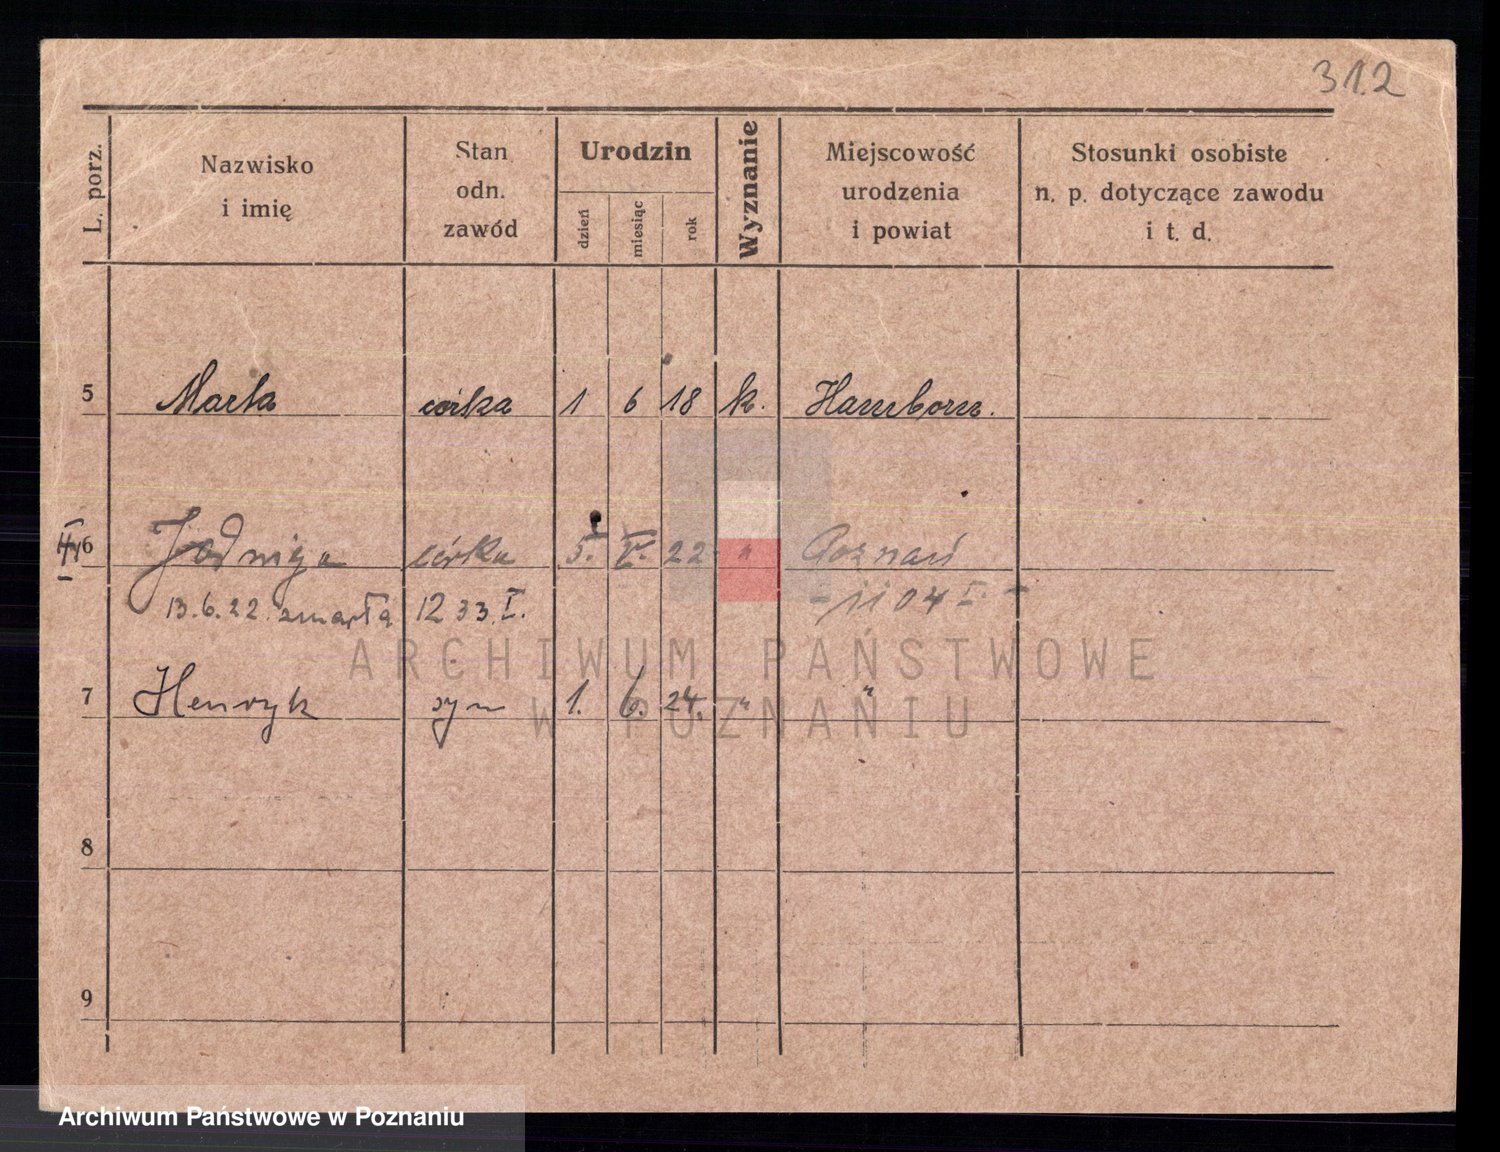 312
L. porz.
Nazwisko
i imię
Stan
odn.
zawód
Urodzin
dzień
miesiąc
rok
Wyznanie
Miejscowość
urodzenia
i powiat
Stosunki osobiste
n. p. dotyczące zawodu
i t. d.
5 Marta córka 1 6 18 k. Hamborn.
6 Jadwiga córka 5. V. 22 " Poznań
13.6.22. zmarła 1233.I. - 1104 I. -
7 Henryk syn 1. 6. 24. " "
8
9
ARCHIWUM PAŃSTWOWE
W POZNANIU
Archiwum Państwowe w Poznaniu